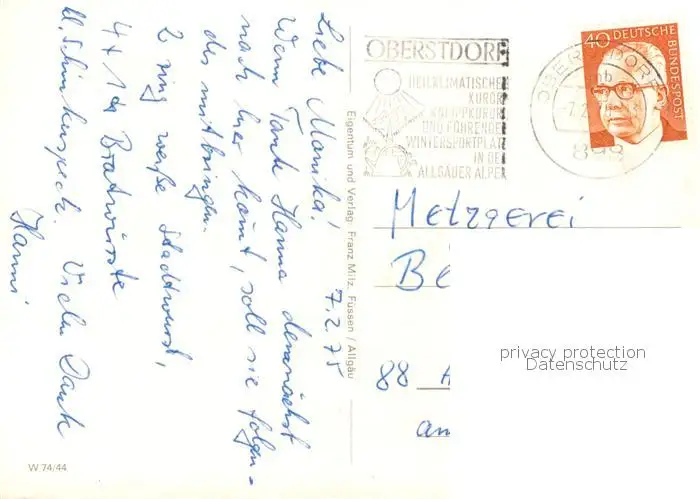 Liebe Monika! 7.2.75
Wenn Tante Hanna demnächst
nach hier kommt, soll sie folgen-
des mitbringen.
2 ring weiße Stadtwurst,
4 x 1 Bratwürste
u. Schinkenspeck. Vielen Dank
Hanni
Eigentum und Verlag: Franz Milz, Füssen / Allgäu
W 74/44
OBERSTDORF
HEILKLIMATISCHER
KURORT
KNEIPPKURORT
UND FÜHRENDER
WINTERSPORTPLATZ
IN DEN
ALLGÄUER ALPEN
OBERSTDORF
mb
899
40 DEUTSCHE
BUNDESPOST
Metzgerei
Be
88 A
an
privacy protection
Datenschutz